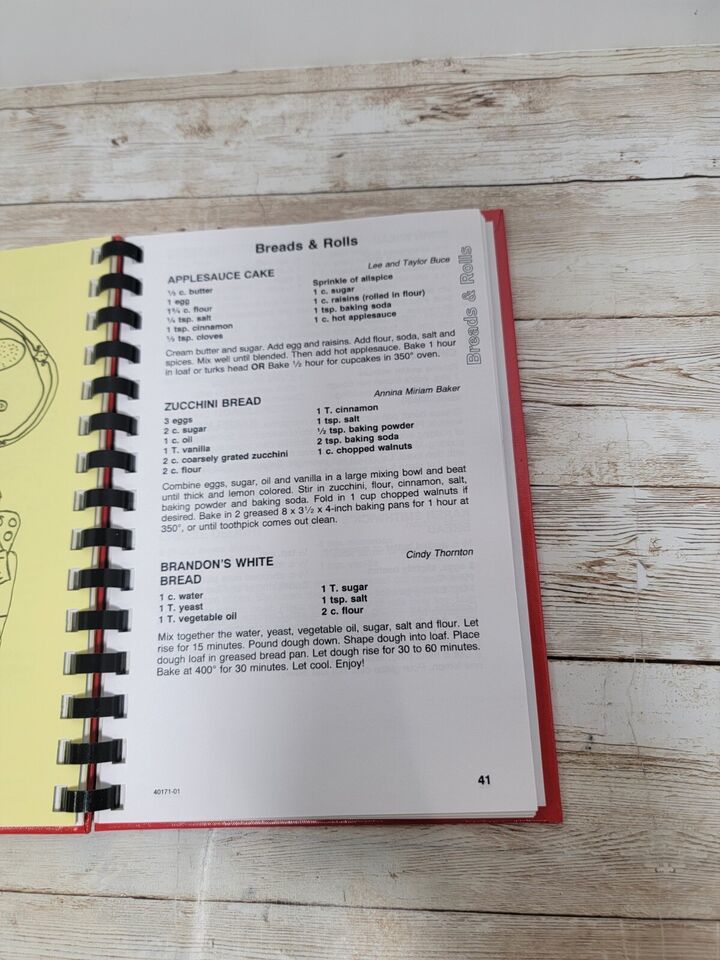 Breads & Rolls
APPLESAUCE CAKE
Lee and Taylor Buce
½ c. butter
1 egg
1¾ c. flour
¼ tsp. salt
1 tsp. cinnamon
½ tsp. cloves
Sprinkle of allspice
1 c. sugar
1 c. raisins (rolled in flour)
1 tsp. baking soda
1 c. hot applesauce
Cream butter and sugar. Add egg and raisins. Add flour, soda, salt and
spices. Mix well until blended. Then add hot applesauce. Bake 1 hour
in loaf or turks head OR Bake ½ hour for cupcakes in 350° oven.
Breads & Rolls
ZUCCHINI BREAD
Annina Miriam Baker
3 eggs
2 c. sugar
1 c. oil
1 T. vanilla
2 c. coarsely grated zucchini
2 c. flour
1 T. cinnamon
1 tsp. salt
½ tsp. baking powder
2 tsp. baking soda
1 c. chopped walnuts
Combine eggs, sugar, oil and vanilla in a large mixing bowl and beat
until thick and lemon colored. Stir in zucchini, flour, cinnamon, salt,
baking powder and baking soda. Fold in 1 cup chopped walnuts if
desired. Bake in 2 greased 8 x 3½ x 4-inch baking pans for 1 hour at
350°, or until toothpick comes out clean.
BRANDON'S WHITE
BREAD
Cindy Thornton
1 c. water
1 T. yeast
1 T. vegetable oil
1 T. sugar
1 tsp. salt
2 c. flour
Mix together the water, yeast, vegetable oil, sugar, salt and flour. Let
rise for 15 minutes. Pound dough down. Shape dough into loaf. Place
dough loaf in greased bread pan. Let dough rise for 30 to 60 minutes.
Bake at 400° for 30 minutes. Let cool. Enjoy!
40171-01
41